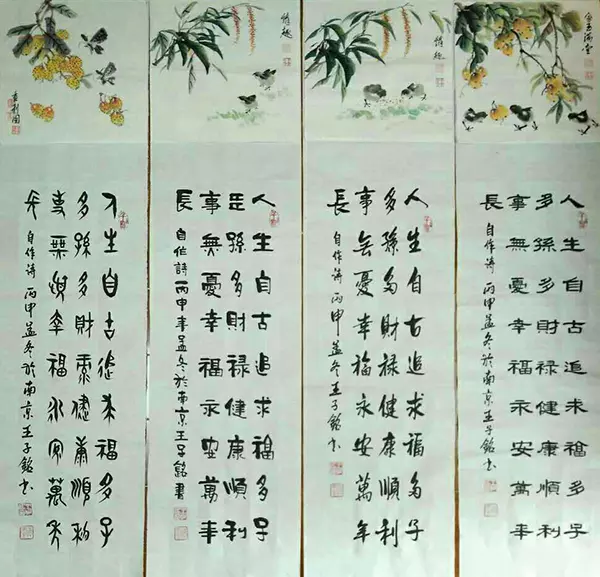 金玉滿堂
人生自古追求福多子
多孫多財祿健康順利
事無憂幸福永安萬年
長 自作詩 丙申孟冬於南京王子銘書
人生自古追求福多子
多孫多財祿健康順利
事無憂幸福永安萬年
長 自作詩 丙申孟冬王子銘書
人生自古追求福多子
多孫多財祿健康順利
事無憂幸福永安萬年
長 自作詩丙申年孟冬於南京王子銘書
人生自古追求福多子
多孫多財祿健康順利
事無憂幸福永安萬年
長 自作詩 丙申孟冬於南京王子銘書